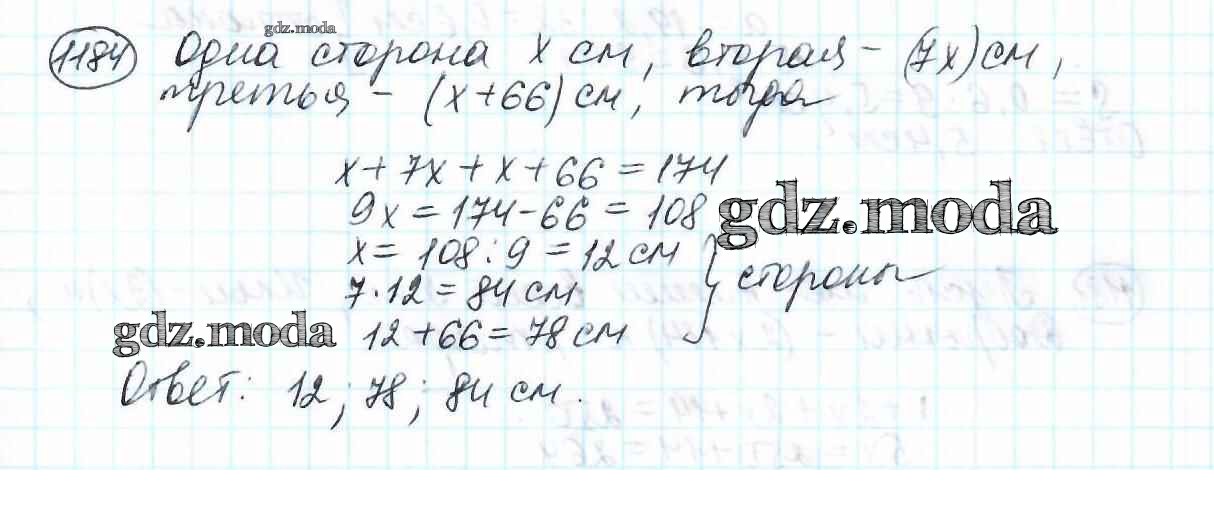 gdz.moda
1184 Одна сторона x см, вторая – (7x) см,
третья – (x+66) см, тогда
x + 7x + x + 66 = 174
9x = 174 - 66 = 108
gdz.moda
x = 108 : 9 = 12 см
7 · 12 = 84 см
стороны
gdz.moda
12 + 66 = 78 см
Ответ: 12; 78; 84 см.